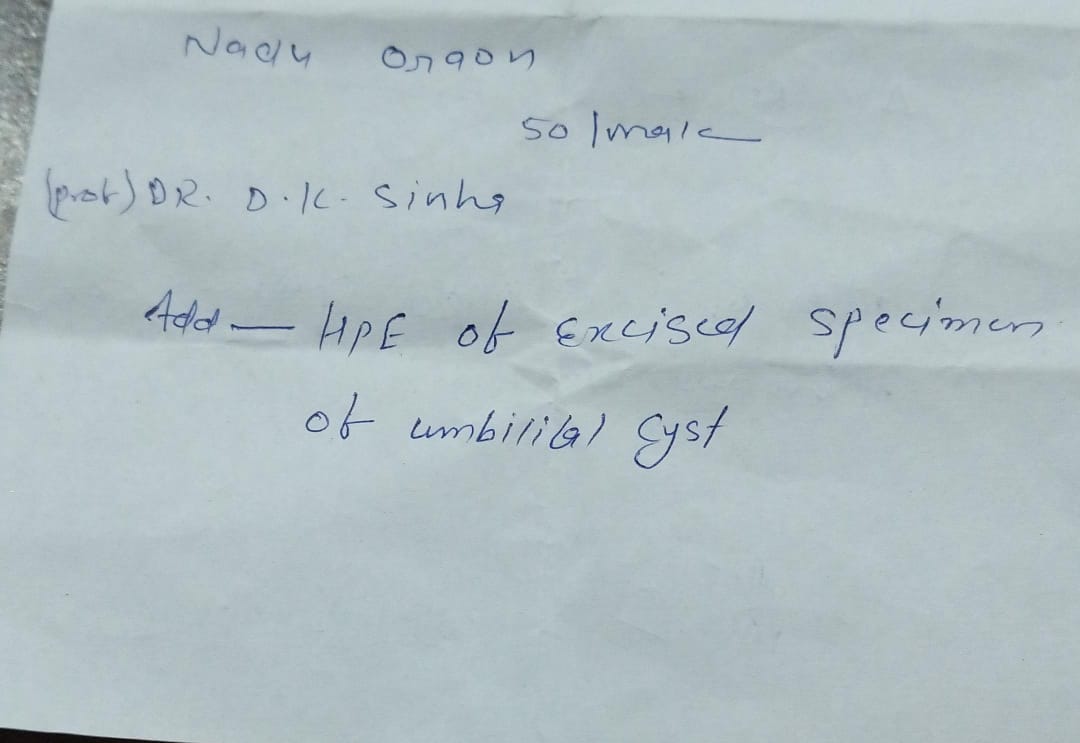 Nadu Oraon
50/male
(prof) DR. D.K. Sinha
Add — HPE of Excised specimen
of umbilical cyst